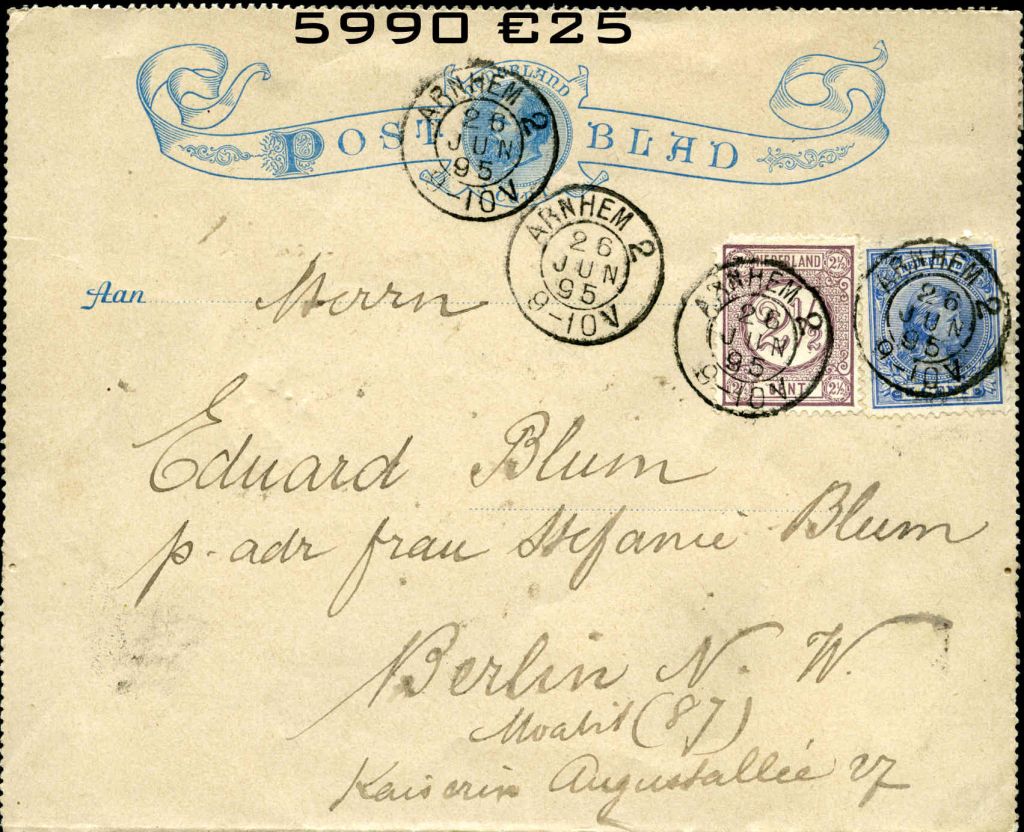 5990 €25
NEDERLAND
POSTBLAD
CENT
ARNHEM 2
26
JUN
95
9-10V
ARNHEM 2
26
JUN
95
9-10V
NEDERLAND
2½ 2½
2½
2½ CENT 2½
ARNHEM 2
26
JUN
95
9-10V
ARNHEM 2
26
JUN
95
9-10V
Aan Herrn
Eduard Blum
p. adr frau Stefanie Blum
Berlin N. W.
Moabit (87)
Kaiserin Augustallée 27